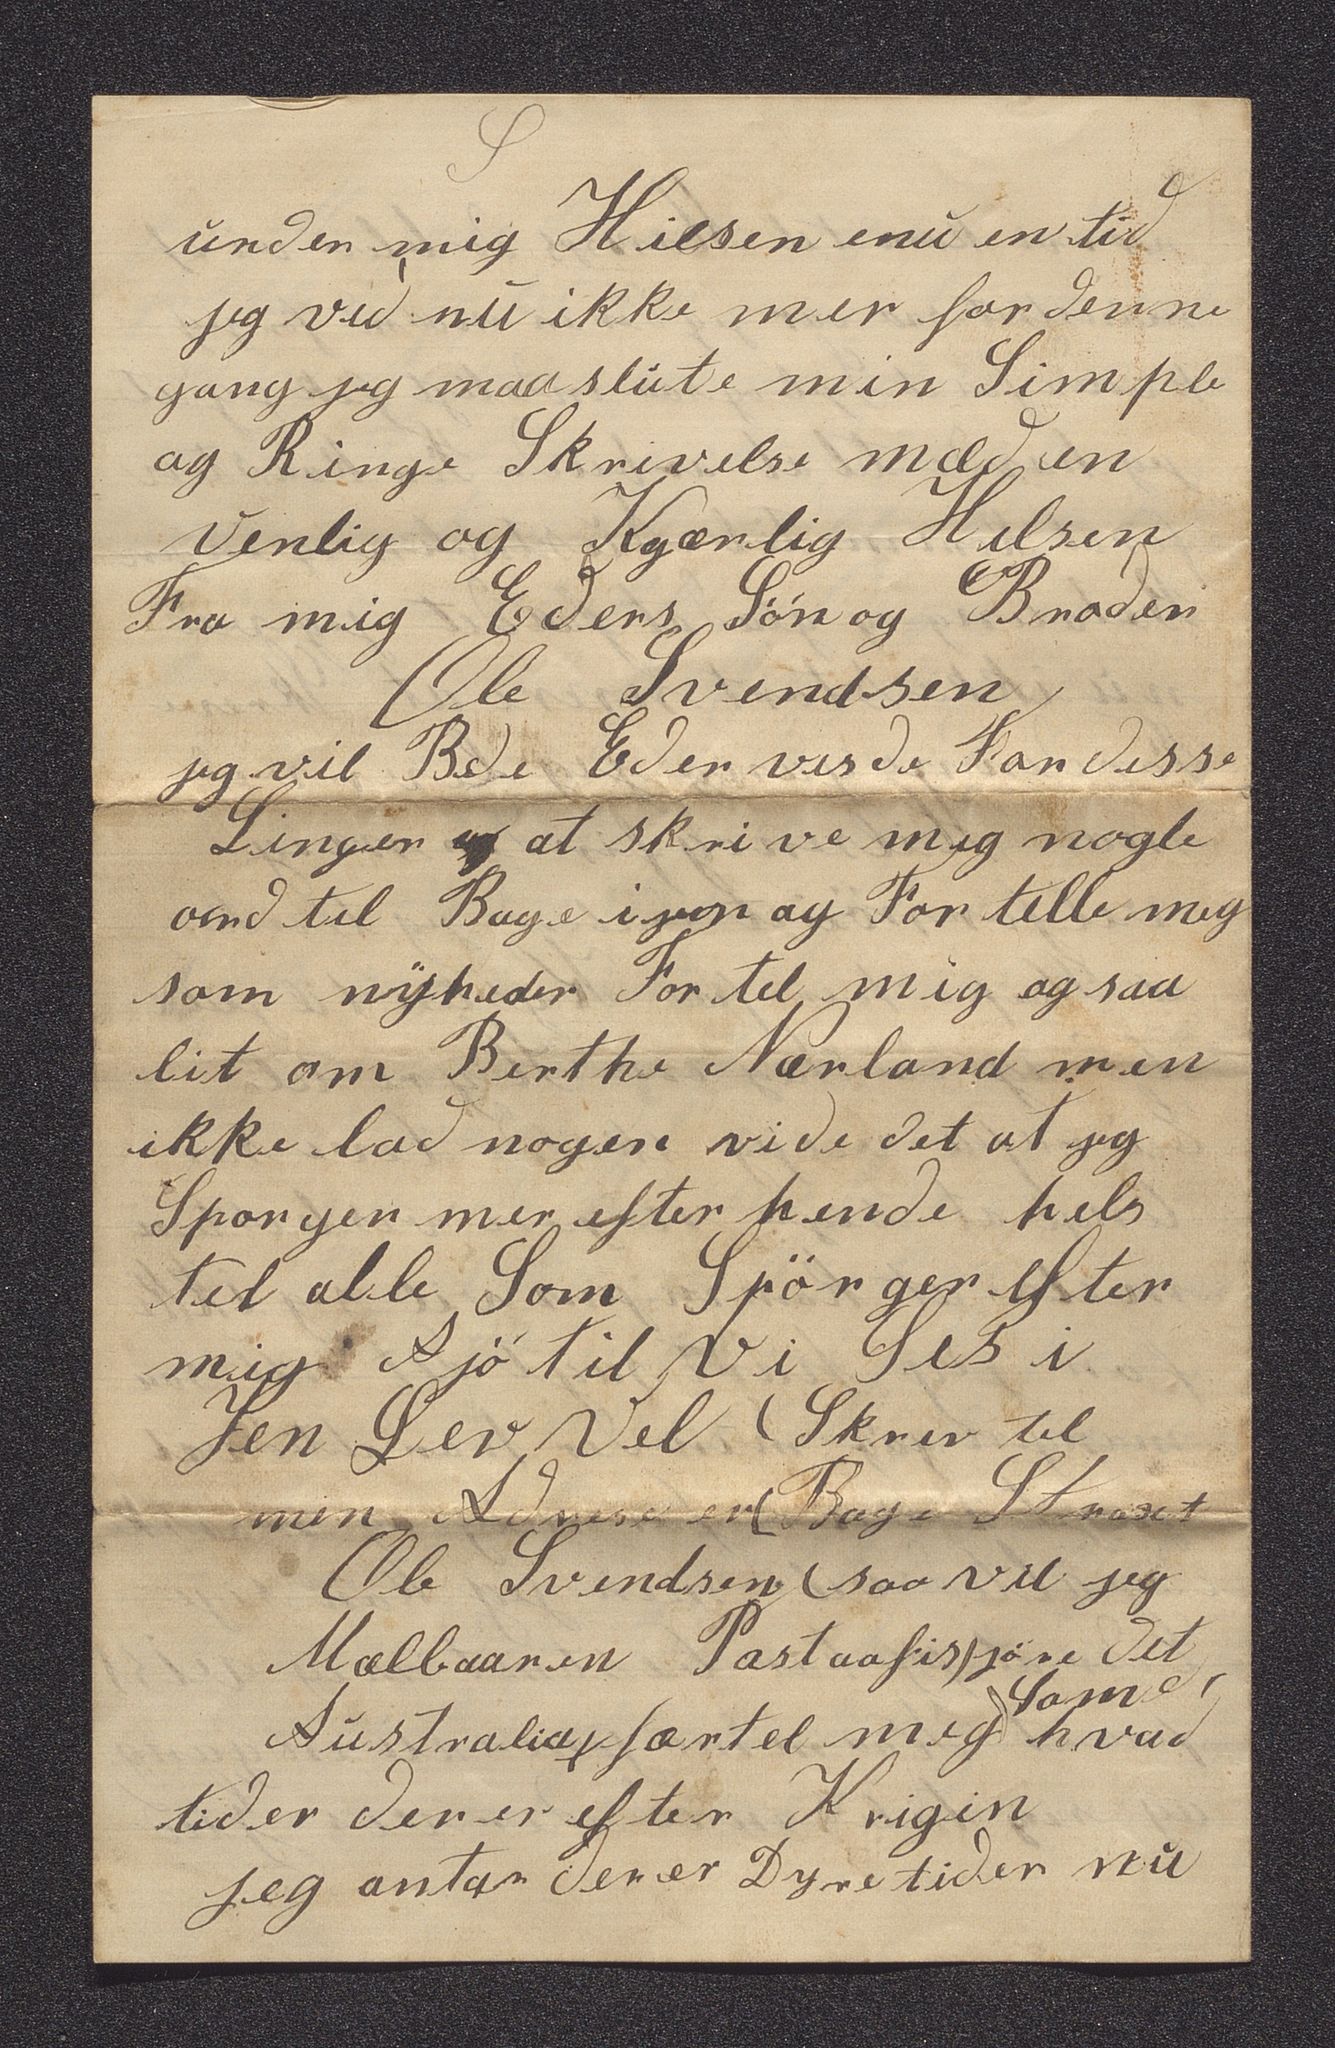 S
under mig Hilsen enu en tid
jeg ved nu ikke mer for denne
gang jeg maa slute min Simple
og Ringe Skrivelse mæd en
Venlig og Kjærlig Helsen
Fra mig Eders Sön og Broder
Ole Svendsen
jeg vil Bede Eder verde For desse
Linger at skrive meg nogle
ord til Bage ijen og For telle meg
som nÿheder For tel mig og saa
lit om Berthe Nærland men
ikke lad nogen vide det at jeg
Sporger mer efter hende hels
tel alle Som Spörger efter
mig Ajö til Vi Ses i
Jen Lev Vel (Skrev tel
men Adrese er (Bage Straxt
Ole Svendsen (saa vil jeg
Mælbaaren Pastaafis) jöre det
Same
Australia færtel meg hvad
tider der er efter Krigin
jeg antar der ær Dyre tider nu